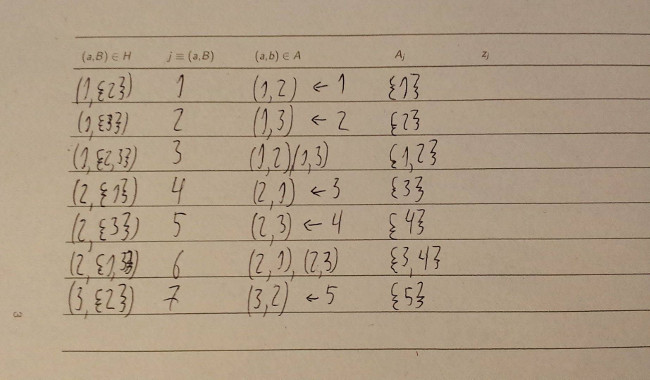 (a,B) ∈ H j ≡ (a,B) (a,b) ∈ A Aj zj
(1,{2}) 1 (1,2) ← 1 {1}
(1,{3}) 2 (1,3) ← 2 {2}
(1,{2,3}) 3 (1,2)(1,3) {1,2}
(2,{1}) 4 (2,1) ← 3 {3}
(2,{3}) 5 (2,3) ← 4 {4}
(2,{1,3}) 6 (2,1), (2,3) {3,4}
(3,{2}) 7 (3,2) ← 5 {5}
3